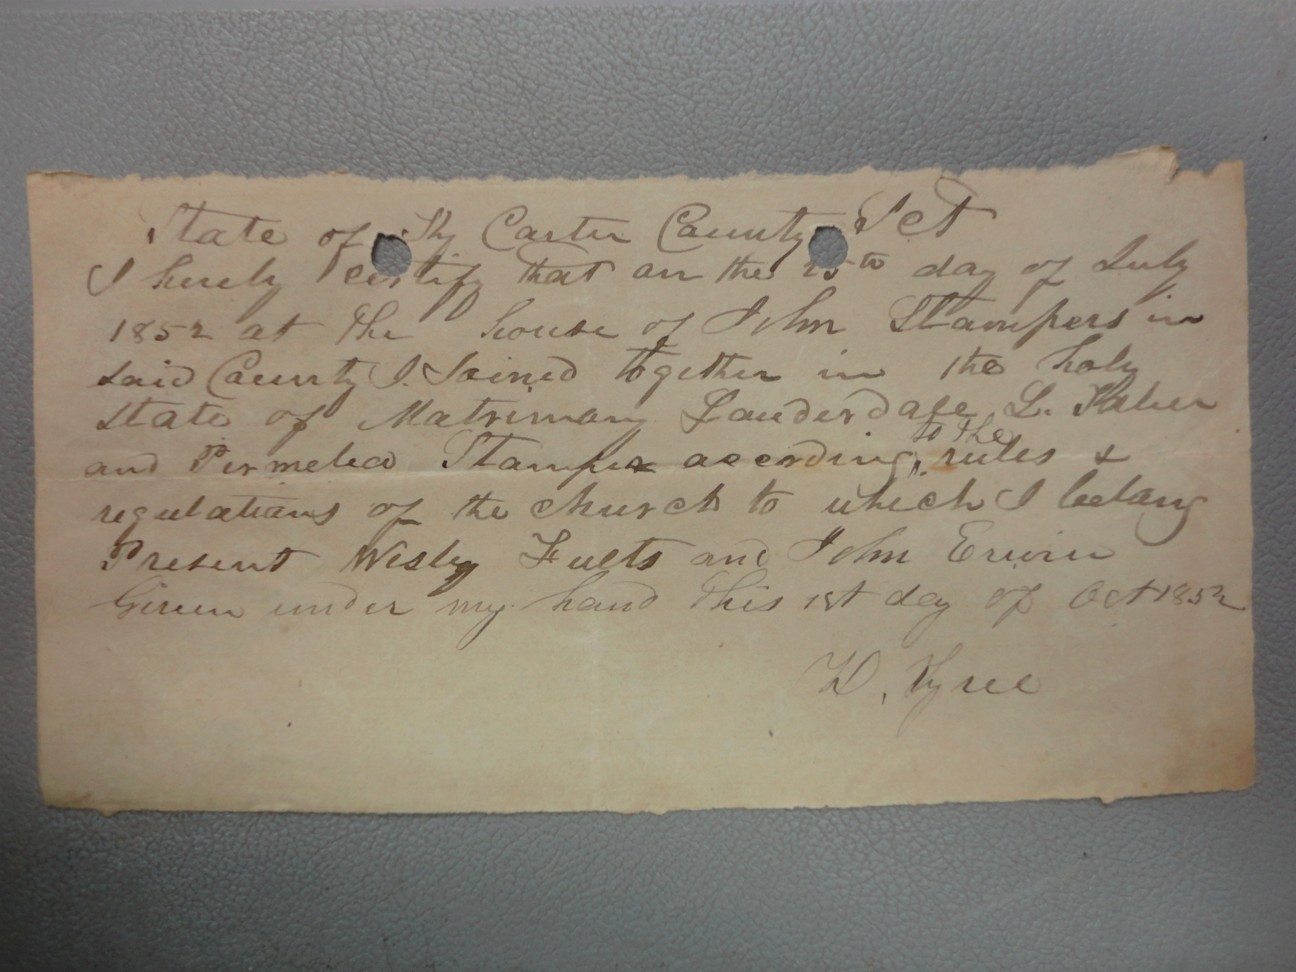 State of Ky Carter County Sct
I herely certify that on the 15th day of July
1852 at the house of John Stampers in
said County I Joined together in the holy
state of Matrimony Lauderdale L.
and Permelia Stamper according to the rules &
regulations of the church to which I belong
Present Wesly Fults and John Erwin
Given under my hand this 1st day of Oct 1852